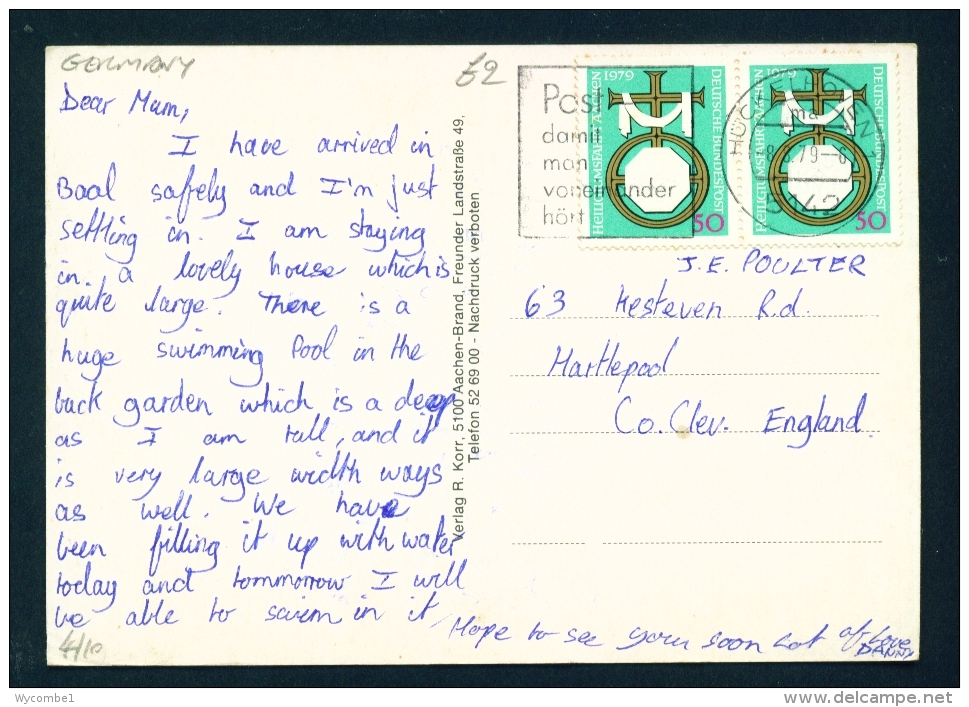 GERMANY
£2
Dear Mum,
I have arrived in
Baal safely and I'm just
settling in. I am staying
in a lovely house which is
quite large. There is a
huge swimming Pool in the
back garden which is a deep
as I am tall, and it
is very large width ways
as well. We have
been filling it up with water
today and tommorrow I will
be able to swim in it.
Hope to see you soon Lot of Love
DANNY
4/10
Verlag R. Korr, 5100 Aachen-Brand, Freunder Landstraße 49,
Telefon 52 69 00 - Nachdruck verboten
Post
damit
man
voneinander
hört
1979
HEILIGTUMSFAHRT AACHEN
DEUTSCHE BUNDESPOST
50
1979
HEILIGTUMSFAHRT AACHEN
DEUTSCHE BUNDESPOST
50
ma
79-6
5142
J.E. POULTER
63 Hesteven R.d.
Hartlepool
Co. Clev. England.
Wycombe1
www.delcampe.net